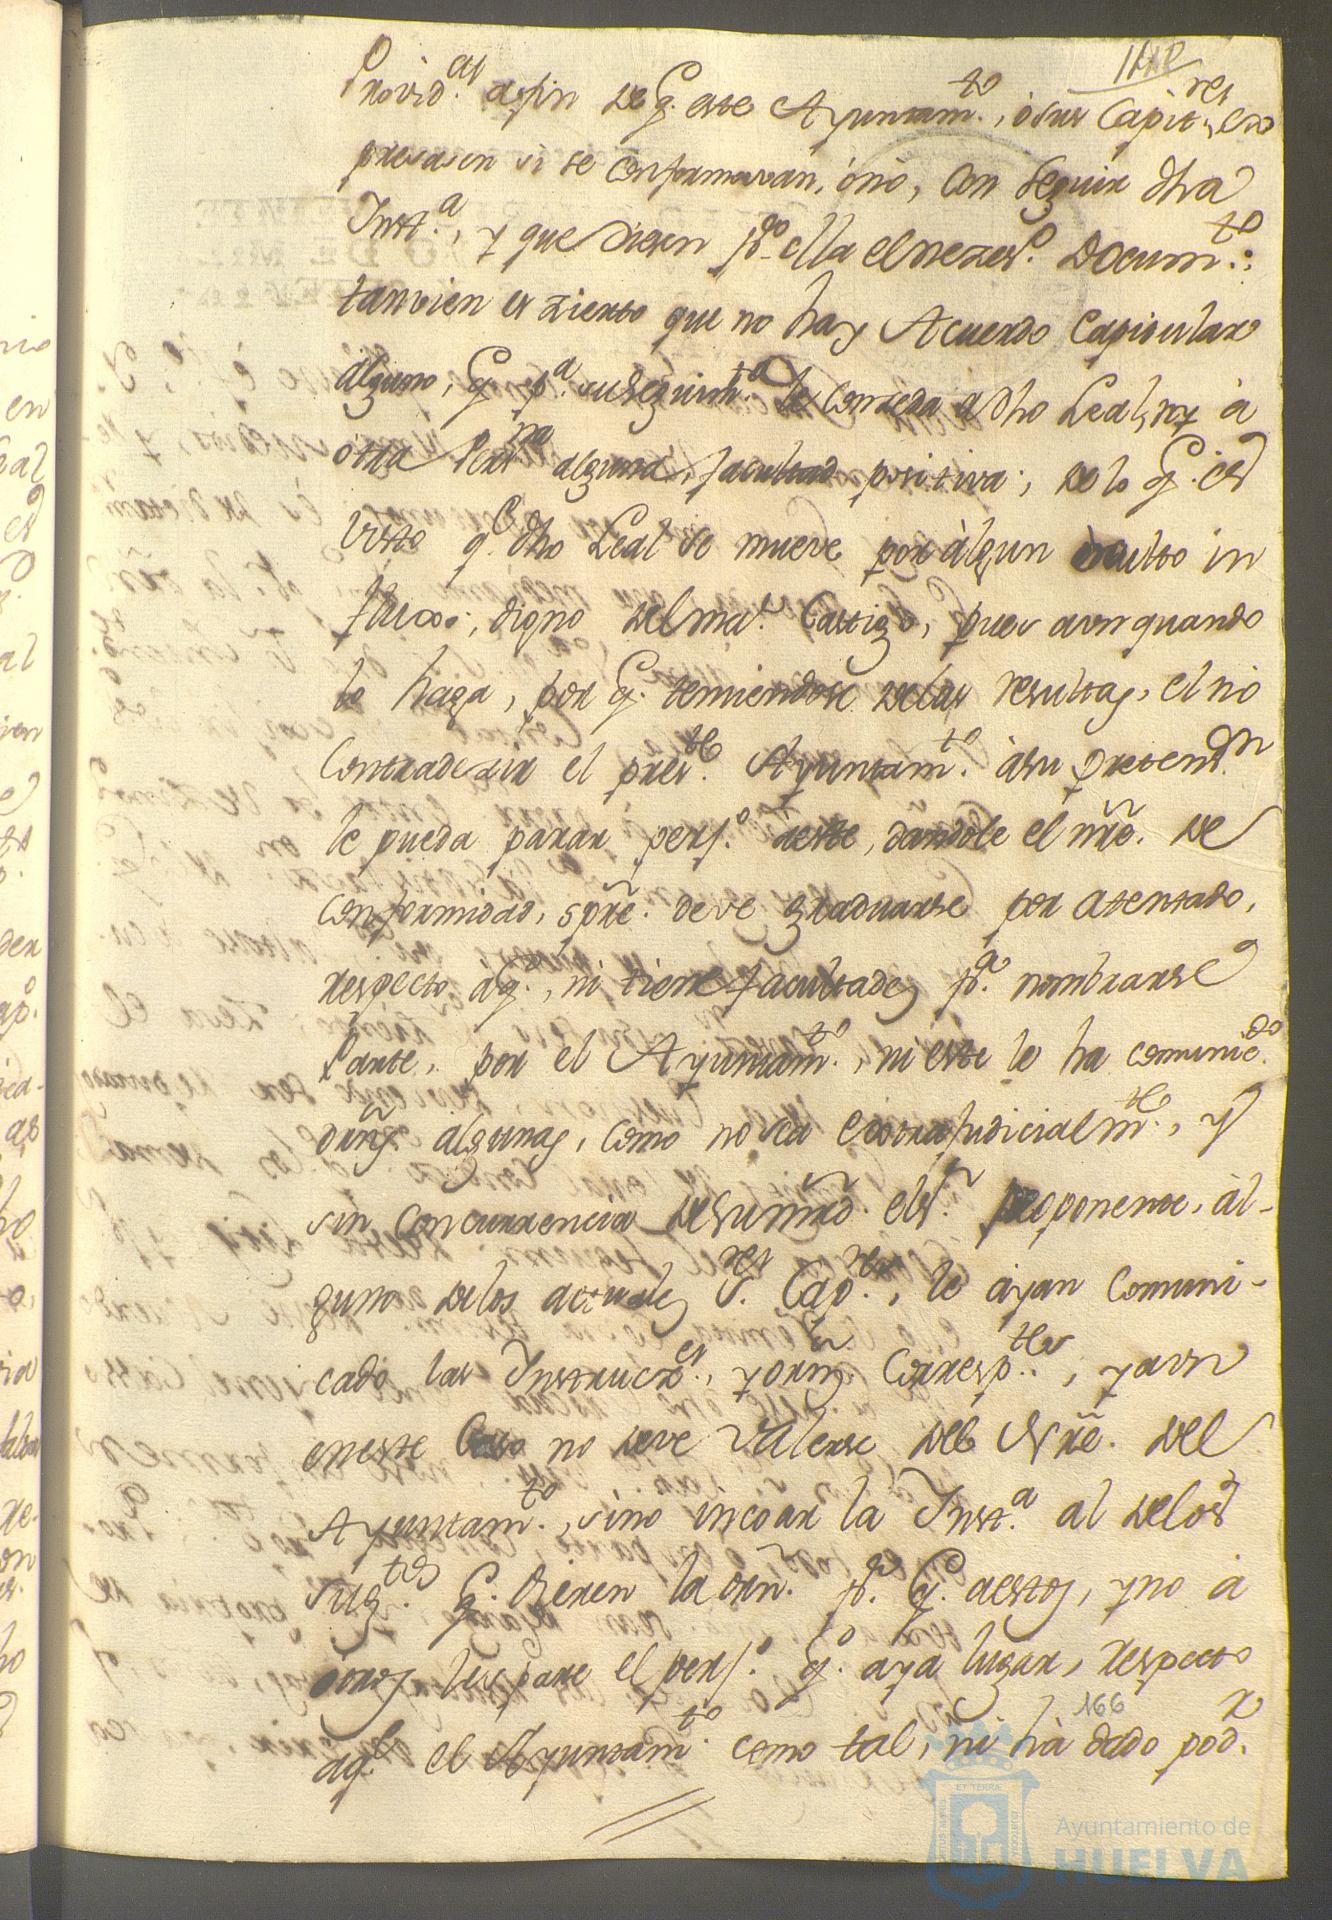 Provid.as afin de q. este Ayuntam.to, ó sus Capit.res ex
presasen si se conformavan, ó nó, con seguir dha
Inst.a, y que diesen p.a ella el nezes.o Docum.to;
tanvien es zierto que no hay Acuerdo Capitular
alguno, q. p.a su seguim.to le conzeda a dho Leal, ny à
otra Pers.na alguna, facultad positiva; de lo q. es
visto q. dho Leal se mueve por àlgun oculto in
fluxo, digno del ma.r Castigo, pues aun quando
lo haga, por q. temiendose delas resultas, el no
Contradezir el pres.te Ayuntam.to àsu pretens.on
le pueda parar perj.o àeste, dandole el nrõ. de
Conformidad, sprẽ. deve graduarse por atentado,
respecto áq., ni tiene facultades p.a nombrarse
Parte, por el Ayuntam.to, ni este le ha comunic.do
orñs algunas, como no sea extrajudicialm.te, y
sin concurrencia desumrd. els.r proponente, àl-
guno delos actuales S.res Cap.res, le áyan Comuni-
cado las Instrucz.es, y orñ Corresp.tes, y aun
eneste Caso no deve valerse del Nrẽ. del
Ayuntam.to, sino incoar la Inst.a al delos
sug.tos q. dieren la orñ. p.a q. aestos, y no à
otros, les pare el perj.o q. aya lugar, respecto
aq. el Ayuntam.to como tal, ni hà dado pod.r
166
Ayuntamiento de
HUELVA